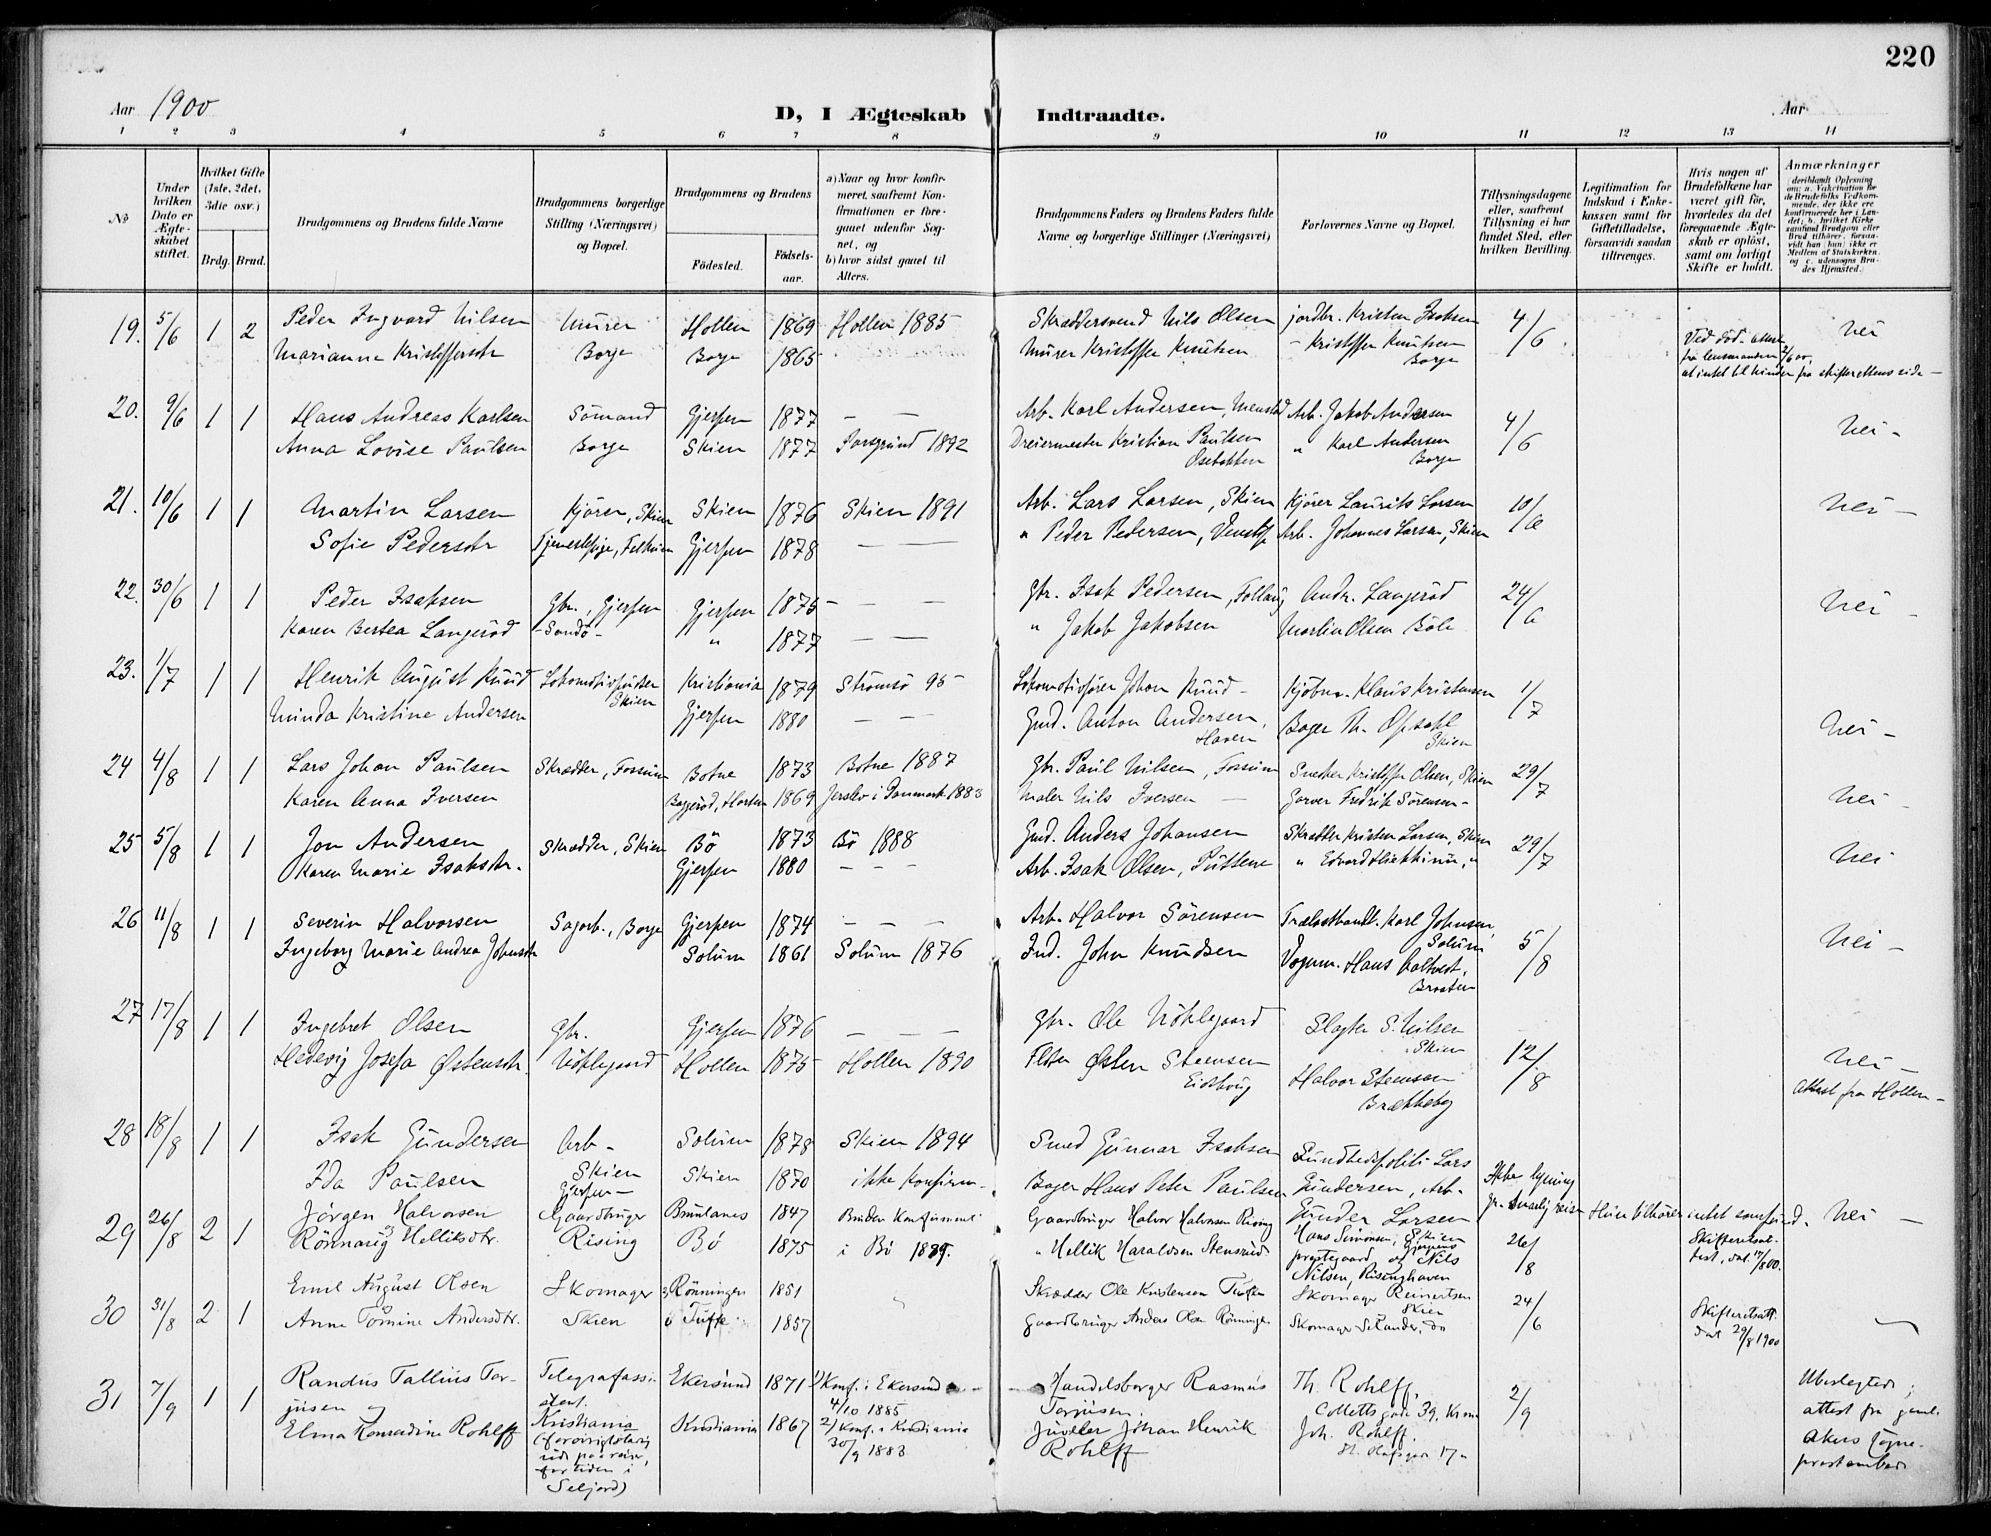 220
Aar 1900
D, I Ægteskab Indtraadte.
Aar
1 2 3 4 5 6 7 8 9 10 11 12 13 14
No
Under hvilken Dato er Ægteskabet stiftet.
Hvilket Gifte (1ste, 2det, 3die osv.)
Brdg. Brud.
Brudgommens og Brudens fulde Navne
Brudgommens borgerlige Stilling (Næringsvei) og Bopæl.
Brudgommens og Brudens
Fødested.
Fødselsaar.
a) Naar og hvor konfirmeret, saafremt Konfirmationen er foregaaet udenfor Sognet, og
b) hvor sidst gaaet til Alters.
Brudgommens Faders og Brudens Faders fulde Navne og borgerlige Stillinger (Næringsvei)
Forlovernes Navne og Bopæl.
Tillysningsdagene eller, saafremt Tillysning ei har fundet Sted, efter hvilken Bevilling.
Legitimation for Indskud i Enkekassen samt for Giftetilladelse, forsaavidt saadan tiltrænges.
Hvis nogen af Brudefolkene har været gift før, hvorledes da det foregaaende Ægteskab er opløst, samt om lovligt Skifte er holdt.
Anmærkninger
19. 5/6 1 2 Peder Ingvard Nilsen Murer Hollen 1869 Hollen 1885 Skræddersvend Nils Olsen jordbr. Kristen Isaksen 4/6 Nei
Marianne Kristoffersdtr Borge Borge 1865 Murer Kristoffer Knutsen - Kristoffer Knutsen Borge
Ved død - attest fra lensmanden 2/6 00, at intet til hinder fra skifterettens side -
20. 9/6 1 1 Hans Andreas Karlsen Sømand Gjerpen 1877 — — Arb. Karl Andersen, Menstad Arb. Jakob Andersen 4/6 Nei -
Anna Lovise Paulsen Borge Skien 1877 Porsgrund 1892 Dreiermester Kristian Paulsen Osebakken " Karl Andersen Borge
21. 10/6 1 1 Martin Larsen Kjører, Skien Skien 1876 Skien 1891 Arb. Lars Larsen, Skien Kjører Laurits Larsen 10/6 Nei -
Sofie Pedersdtr Gjerpen 1878 — — " Peder Pedersen, Arb. Johannes Larsen, Skien
22. 30/6 1 1 Peder Isaksen Gbr., Gjerpen Gjerpen 1875 — — Gbr. Isak Pedersen, Andr. Langerød 24/6 Nei -
Karen Bertea Langerød - Sondø - " 1877 — — " Jakob Jakobsen Martin Olsen Bøle
23. 1/7 1 1 Henrik August Ruud Lokomotivpudser Skien Kristiania 1879 Strømsø 95 Lokomotivfører Johan Ruud - Kjøbm. Klaus Kristensen 1/7
Minda Kristine Andersen Gjerpen 1880 — — Gmd. Anton Andersen, Haven Bager Th. Opsahl Skien Nei -
24 4/8 1 1 Lars Johan Paulsen Skrædder, Fossum Botne 1873 Botne 1887 Gbr. Paul Nilsen, Fossum Snedker Kristoffer Olsen, Skien 29/7 Nei -
Karen Anna Iversen Horten 1869 Jerslev i Danmark 1883 Maler Nils Iversen — Garver Fredrik Sørensen -
25 5/8 1 1 Jon Andersen Skrædder, Skien Bø 1873 Bø 1888 Gmd. Anders Johansen Skrædder Kristen Larsen, Skien 29/7 Nei
Karen Marie Isaksdtr. Gjerpen 1880 — — Arb. Isak Olsen, " Edvard
26 11/8 1 1 Severin Halvorsen Sagarb., Borge Gjerpen 1874 — — Arb. Halvor Sørensen Trælasthandl. Karl Johnsen, Solum 5/8 Nei -
Ingeborg Marie Andrea Johnsdtr Solum 1861 Solum 1876 Ind. John Knudsen Vognm. Hans
27 17/8 1 1 Ingebret Olsen Gbr. Gjerpen 1876 — — — Gbr. Ole Nøklegaard Slagter S. Nilsen Skien 12/8 Nei -
Hedevig Josefa Østensdtr. Nøklegaard Hollen 1875 Hollen 1890 Østen Steensen Eidsbug Halvor Steensen Attest fra Hollen -
28 18/8 1 1 Isak Gundersen Arb - Solum 1878 Skien 1894 Smed Gunnar Isaksen Sundhedspoliti Lars
Ida Paulsen Skien Skien 1870 ikke konfirm. Bager Hans Peter Paulsen Gundersen, Arb. Gunder Larsen, Skien Ikke lysning gr. snarlig reise Hun tilhører intet samfund. Nei -
Gjerpen -
29 26/8 2 1 Jørgen Halvorsen Gaardbruger Brunlanes 1847 Bruden konfirmert Gaardbruger Halvor Halvorsen Rising Hans Simonsen, Gjerpens 26/8
og Rønnaug Helliksdtr. Rising Bø 1875 i Bø 1889. " Hellik Haraldsen Stensrud prestegaard og Nils Nilsen, Risinghaven Skifteretsattest, dat. 17/8 00.
30 31/8 2 1 Emil August Olsen Skomager Rønningen 1851 Skrædder Ole Kristensen Tufte Skomager Reinertsen Skien 24/6 Skifteretsatt. dat 29/8 1900
Anne Tomine Andersdtr. Skien Tufte 1857 Gaardbruger Anders Olsen Rønningen Skomager Selander, do
31 7/9 1 1 Randus Tallius Torjusen og Telegrafassistent. Ekersund 1871 1) Konf. i Ekersund 4/10 1885 Handelsborger Rasmus Torjusen. Th. Rohlff, Colletts gade 39, Krania 2/9 Ubeslægtede; attest fra gamle Akers sogneprestembede
Elma Konradine Rohlff Kristiania (forøvrigt stadig ude paa reise, for tiden i Seljord) Kristiania 1867 2) Konf. i Kristiania 30/9 1883 Juveler Johan Henrik Rohlff Joh. Rohlff. St. Olafsgade 17